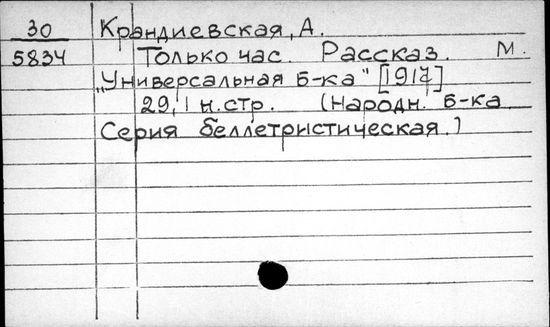 30 Крандиевская, А.
5834 Только час. Рассказ. М.
„Универсальная б-ка" [1917]
29,1 н.стр. (Народн. б-ка.
Серия беллетристическая.)